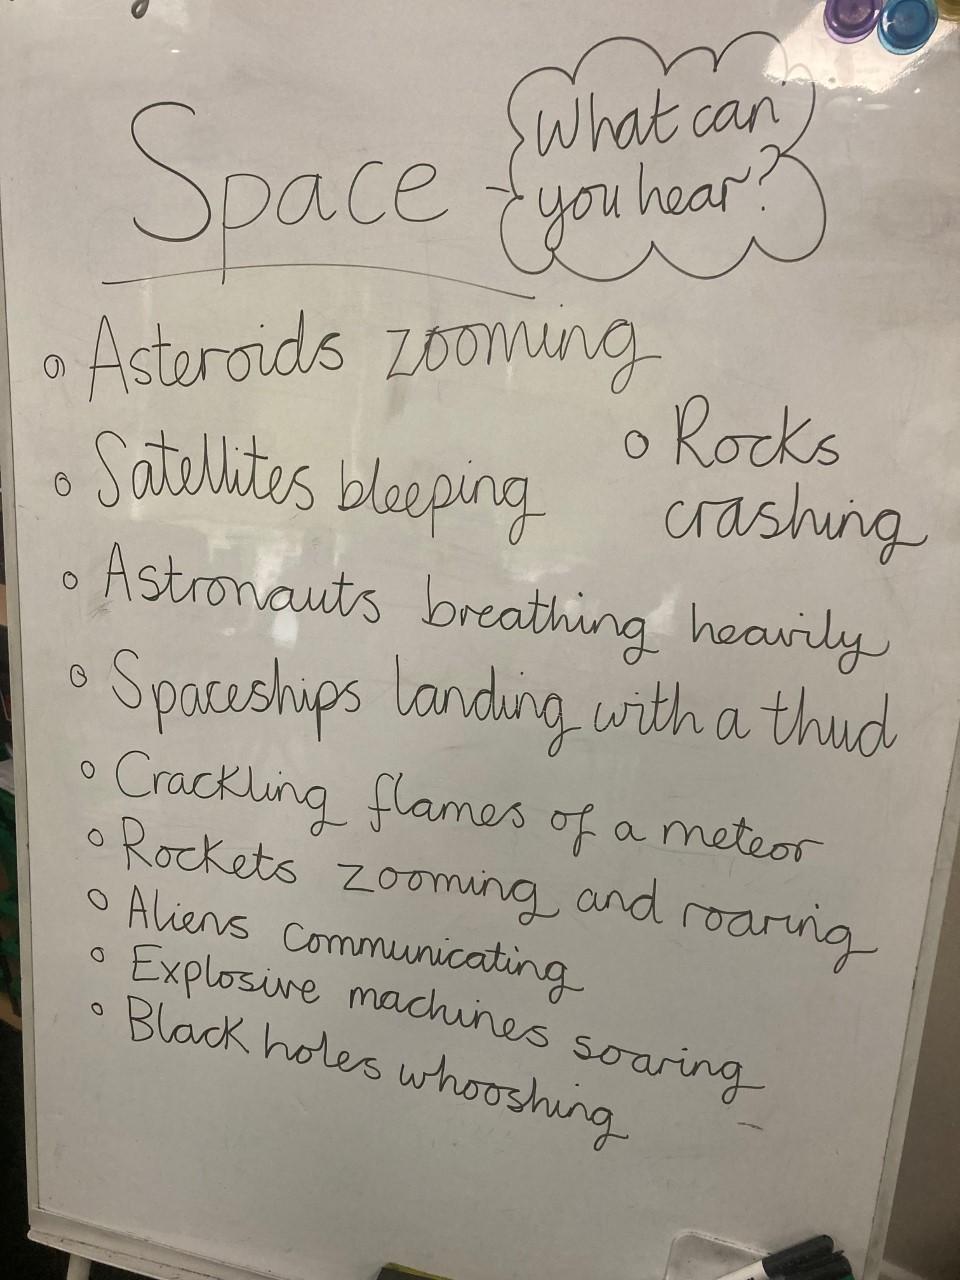 Space
What can
you hear?
Asteroids zooming
Satellites bleeping
Rocks
crashing
Astronauts breathing heavily
Spaceships landing with a thud
Crackling flames of a meteor
Rockets zooming and roaring
Aliens communicating
Explosive machines soaring
Black holes whooshing